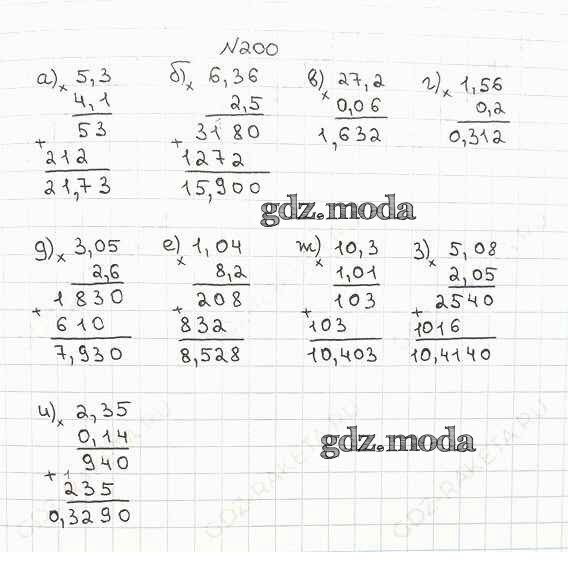 N200
а) × 5,3 б) × 6,36 в) × 27,2 г) × 1,56
4,1 2,5 0,06 0,2
53 3180 1,632 0,312
+ 212 + 1272
21,73 15,900
gdz.moda
д) × 3,05 е) × 1,04 ж) × 10,3 з) × 5,08
2,6 8,2 1,01 2,05
1830 208 103 2540
+ 610 + 832 + 103 + 1016
7,930 8,528 10,403 10,4140
и) × 2,35
0,14
940
+ 235
0,3290
gdz.moda
GDZ-RAKETA.RU
GDZ-RAKETA.RU